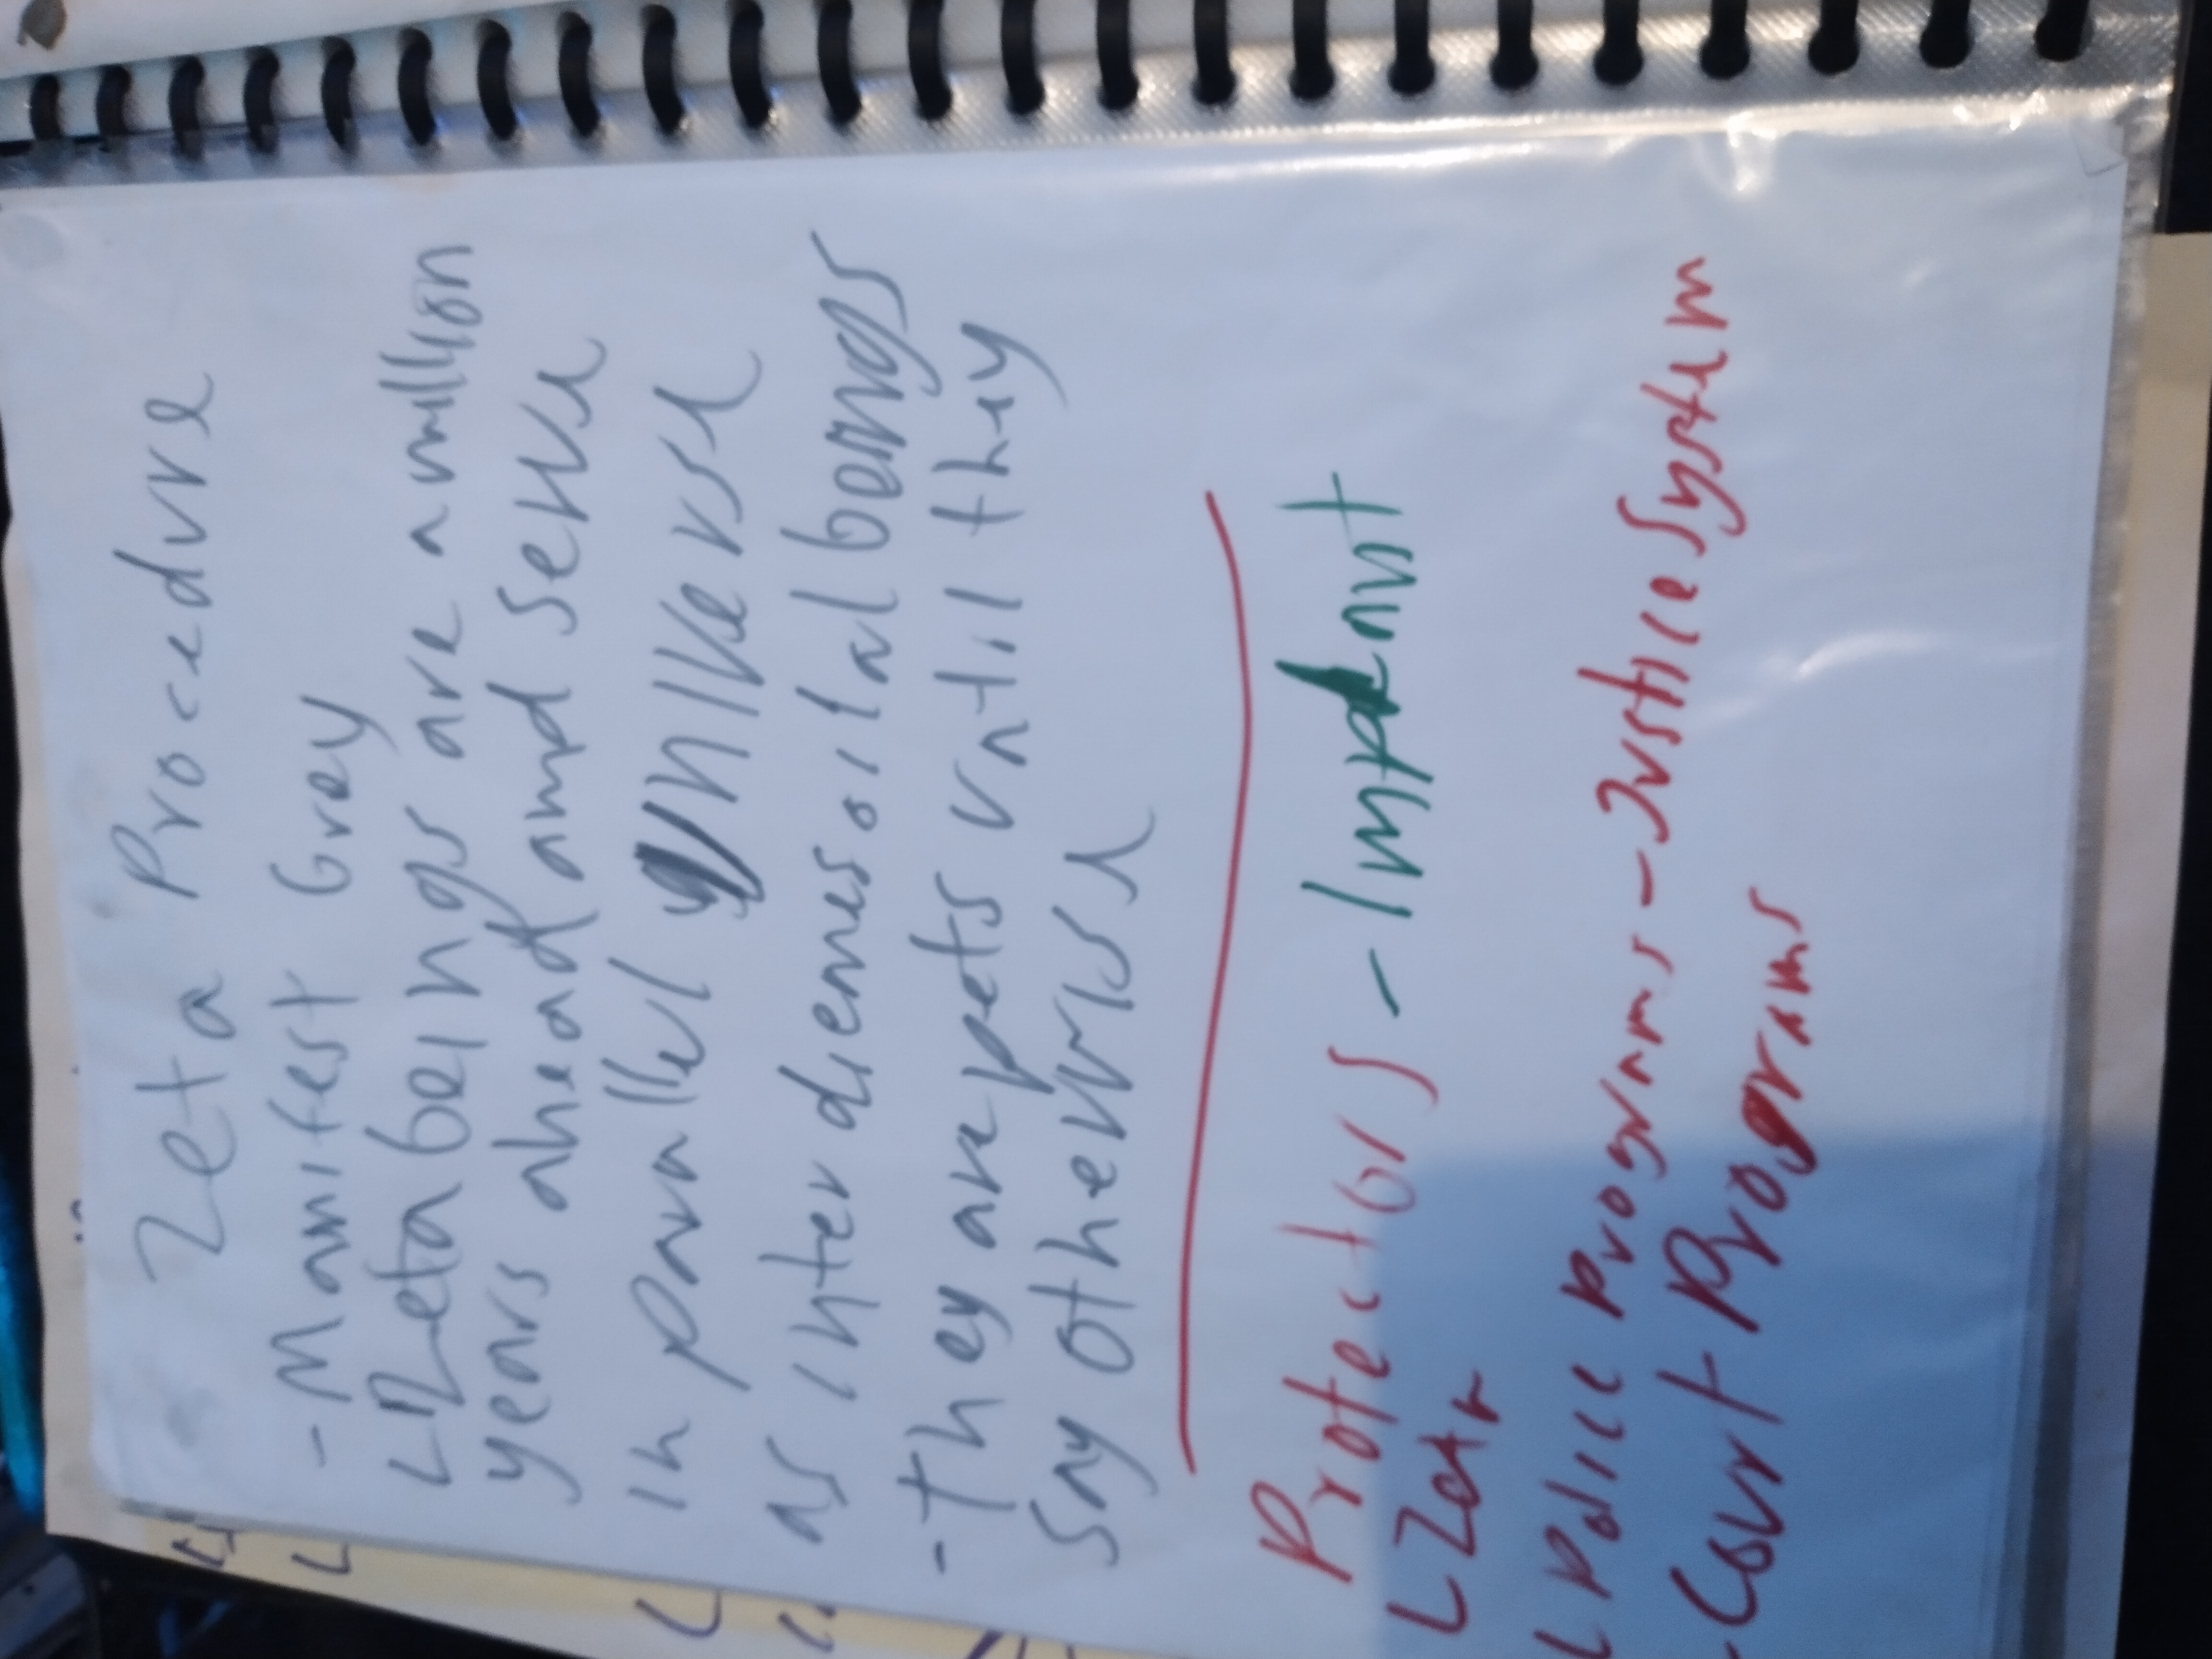 Zeta Procedure
- Manifest Gray
L Zeta beings are a million
years ahead and serve
in parallel universe
as inter diemesoial beings
- They are pets until they
say otherwise
Protectors - Implant
L Zeta
L Police Programs - Justice System
- Court Programs